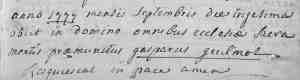 anno 1777 mensis septembris die trigesima
obiit in domino omnibus ecclesiæ sacra
mentis præmunitus gasparus guilmot
Requiescat in pace amen